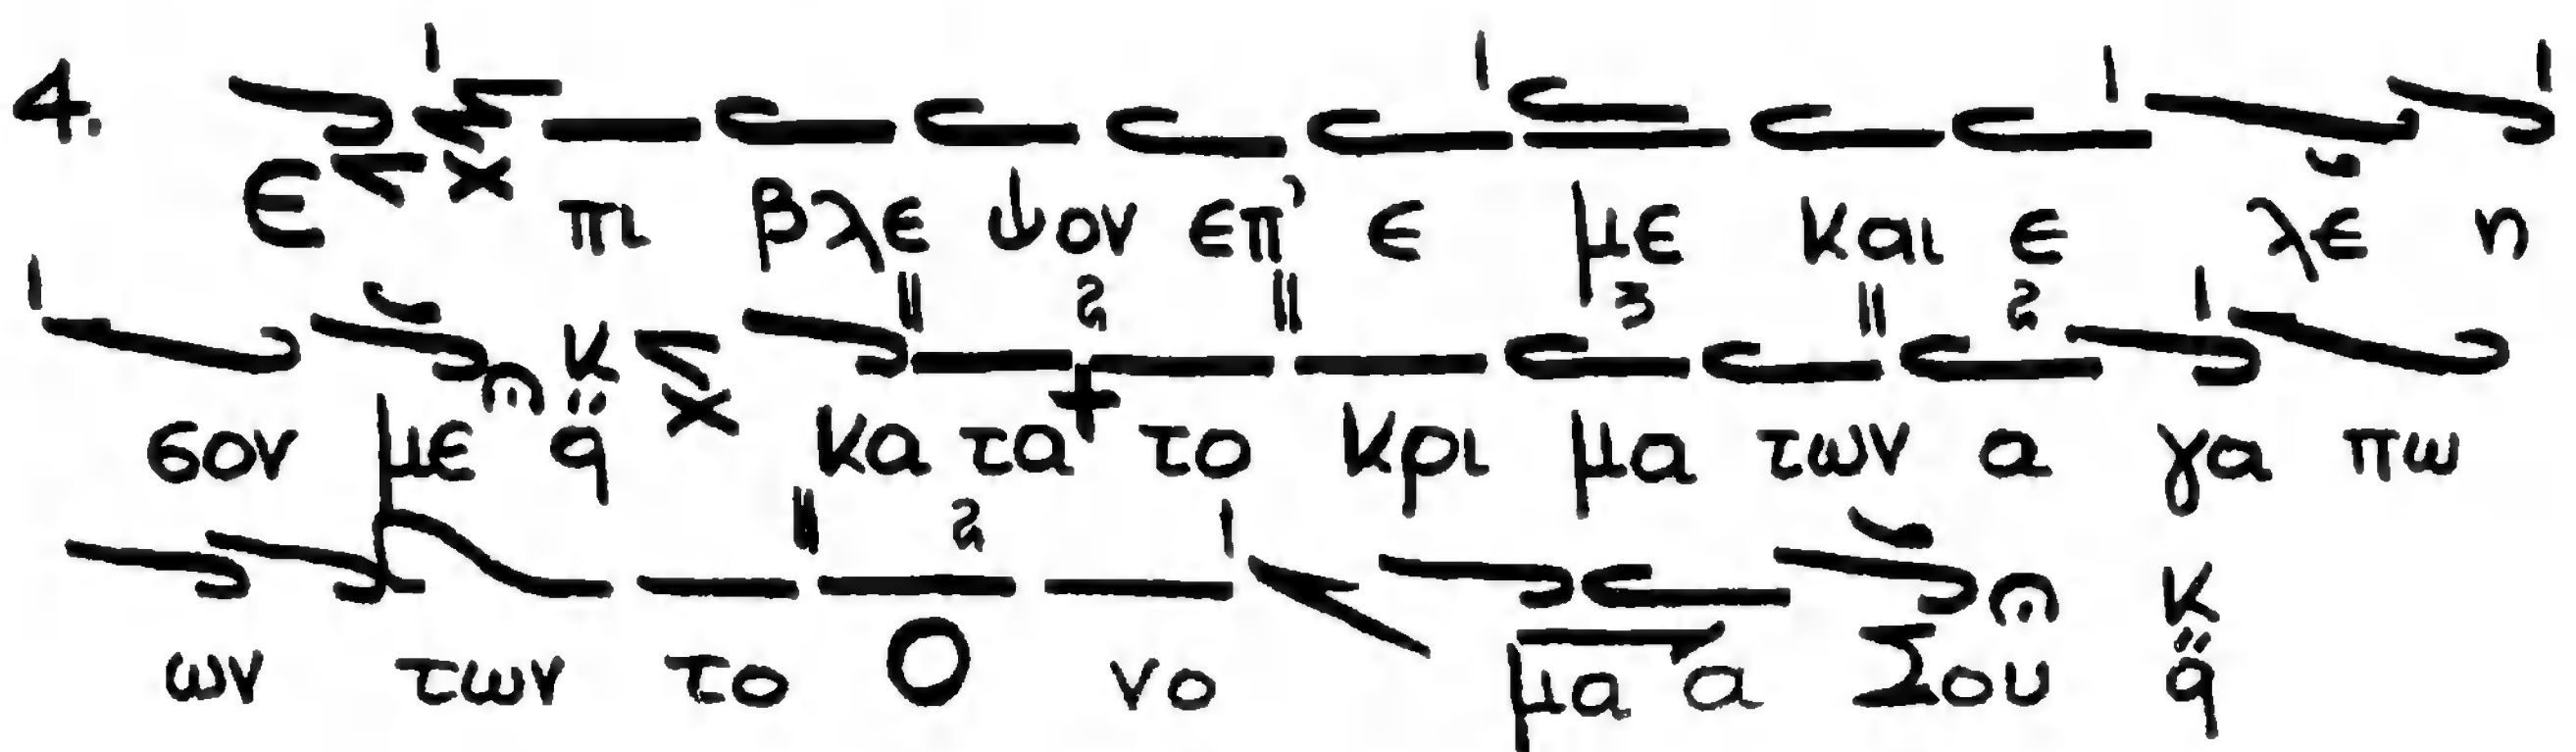 4. Ε πι βλε ψον επ' ε με και ε λε η
σον με κ q κα τα το κρι μα των α γα πω
ων των το Ο νο μα α Σου κ q